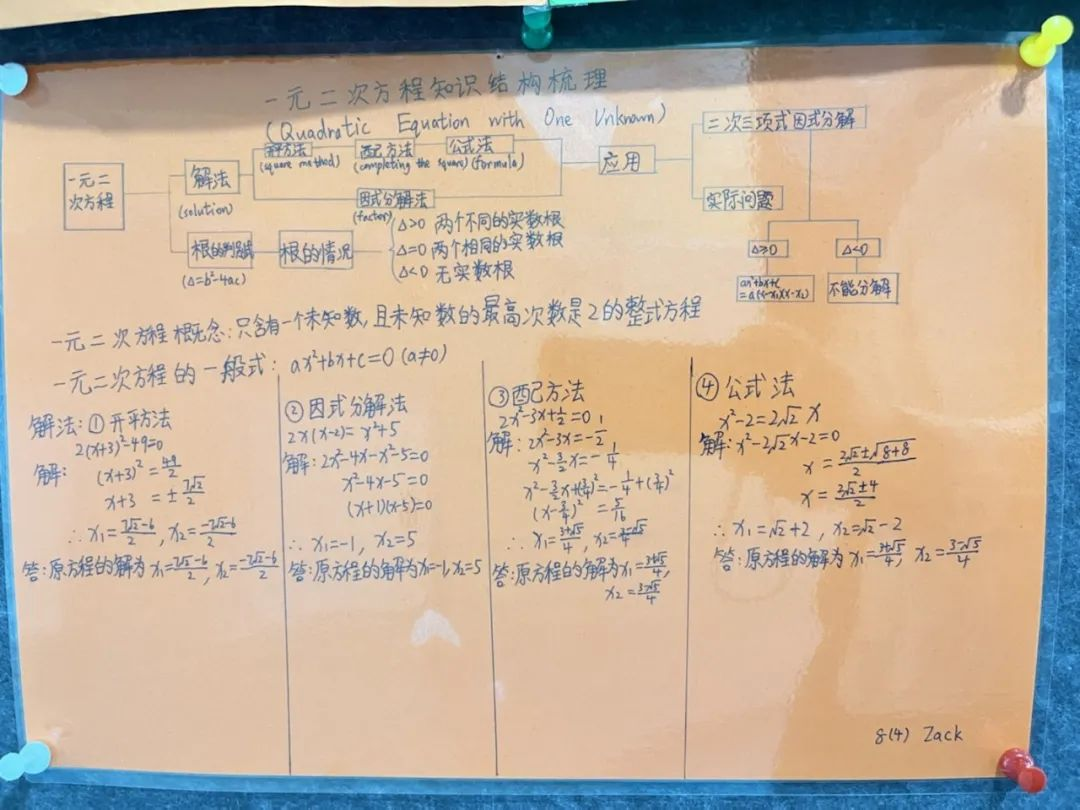 一元二次方程知识结构梳理
(Quadratic Equation with One Unknown)
一元二次方程
解法
(solution)
开平方法
(square method)
配方法
(completing the square)
公式法
(formula)
因式分解法
(factor)
应用
二次三项式因式分解
实际问题
△≥0
△<0
ax²+bx+c
=a(x-x₁)(x-x₂)
不能分解
根的判别式
(△=b²-4ac)
根的情况
△>0 两个不同的实数根
△=0 两个相同的实数根
△<0 无实数根
一元二次方程概念:只含有一个未知数,且未知数的最高次数是2的整式方程
一元二次方程的一般式: ax²+bx+c=0(a≠0)
解法:①开平方法
2(x+3)²-49=0
解: (x+3)²=49/2
x+3 =±7√2/2
∴x₁=7√2-6/2, x₂=-7√2-6/2
答:原方程的解为x₁=7√2-6/2, x₂=-7√2-6/2
②因式分解法
2x(x-2)=x²+5
解:2x²-4x-x²-5=0
x²-4x-5=0
(x+1)(x-5)=0
∴x₁=-1, x₂=5
答:原方程的解为x₁=-1, x₂=5
③配方法
2x²-3x+1/2=0
解:2x²-3x=-1/2
x²-3/2x=-1/4
x²-3/2x+(3/4)²=-1/4+(3/4)²
(x-3/4)²=5/16
∴x₁=3+√5/4, x₂=3-√5/4
答:原方程的解为x₁=3+√5/4,
x₂=3-√5/4
④公式法
x²-2=2√2 x
解:x²-2√2x-2=0
x=2√2±√8+8/2
x=2√2±4/2
∴x₁=√2+2, x₂=√2-2
答:原方程的解为x₁=3+√5/4, x₂=3-√5/4
8(4) Zack